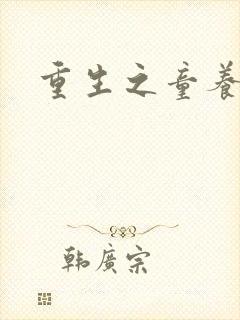 重生之童養
韓廣宗